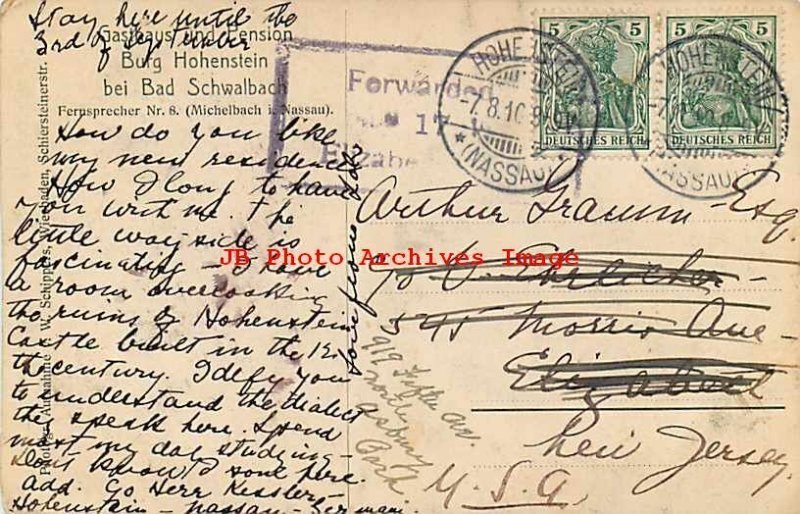 Stay here until the
3rd of September
Gasthaus und Pension
Burg Hohenstein
bei Bad Schwalbach
Fernsprecher Nr. 8. (Michelbach i. Nassau).
How do you like
my new residence
How I long to have
you with me. The
little wayside is
fascinating - I have
a room overlooking
the ruins of Hohenstein
Castle built in the 12
the century. I defy you
to understand the dialect
the speak here. Spend
most my day studying -
know I some here.
add. Co Herr Kessler -
Hohenstein - Nassau - Germani
love from
Photogr. Aufnahme v. W. Schipper, Wiesbaden, Schiersteinerstr.
Forwarded
17
Elizabe
HOHENSTEIN
-7.8.10
* (NASSAU)
5 5
DEUTSCHES REICH
5 5
DEUTSCHES REICH
HOHENSTEIN
(NASSAU)
Arthur Graum Esq.
JB Photo Archives Image
℅ V. Ehrlicher -
595 Morris Ave -
Elizabeth
919 Fifth av.
Asbury
Park
New Jersey.
U.S.A.